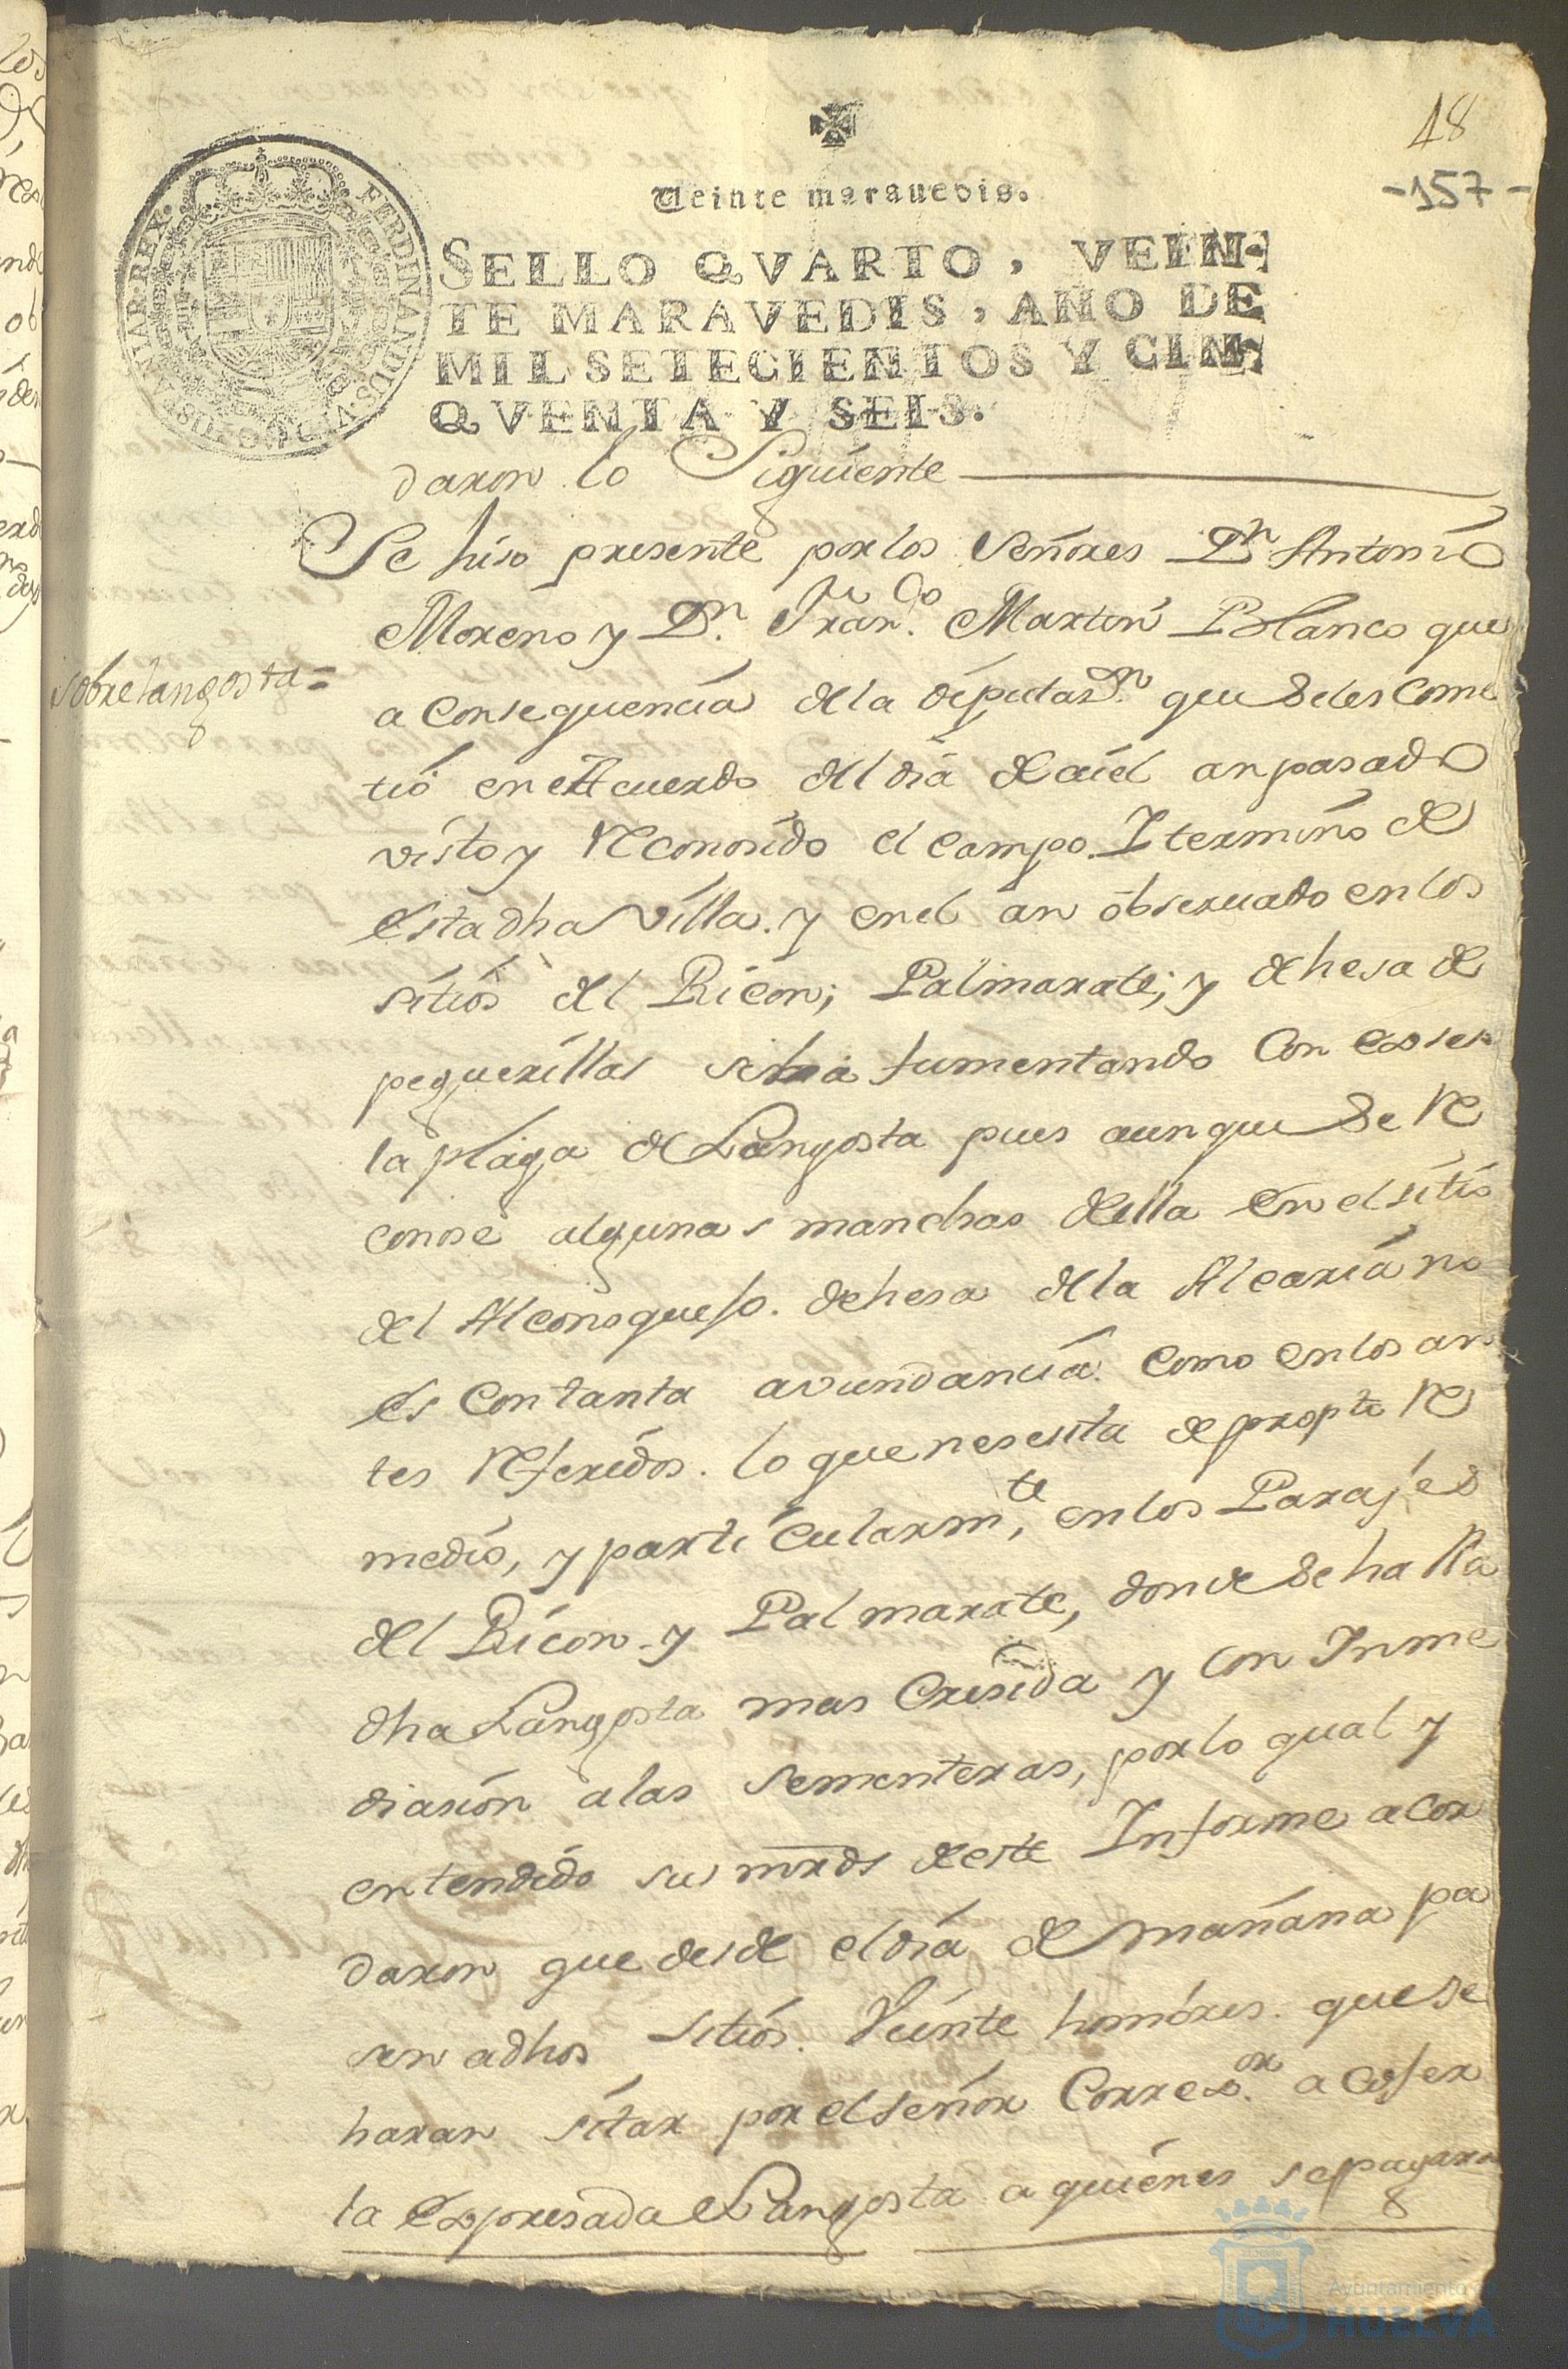 48
-157-
Veinte marauedis.
SELLO QVARTO, VEIN-
TE MARAVEDIS, AÑO DE
MIL SETECIENTOS Y CIN-
QVENTA Y SEIS.
FERDINANDUS VI D G HISPANIAR REX
daron lo Siguiente
Se hiso presente por los Señores Dn Antonio
Moreno y Dn. Franco. Martin Blanco que
sobre langosta =
a consequencia de la diputasn. que se les come
tió en Acuerdo del dia de aiel an pasado
visto y reconosido el campo Y termino de
esta dha Villa. y en el an observado en los
sitios del Ricon; Palmarate; y dehesa de
pequerillas se ha fumentando con exses
la plaga de Langosta pues aunque se re
conose algunas manchas della en el sitio
del Alconoqueso. dehesa de la Alcaria no
es con tanta avundancia como en los an
tes referidos. lo que nesesita de propto re
medio, y particularmte, en los Parajes
del Ricon y Palmarate, donde se halla
dha Langosta mas Cresida y con Inme
diasion a las sementeras, por lo qual y
entendido sus mrds de este Informe acor
daron que desde el dia de mañana pa
sen a dhos sitios. Veinte hombres. que se
haran sitar por el señor Corregor. a cojer
la expresada Langosta a quienes se pagara
Ayuntamiento de
HUELVA